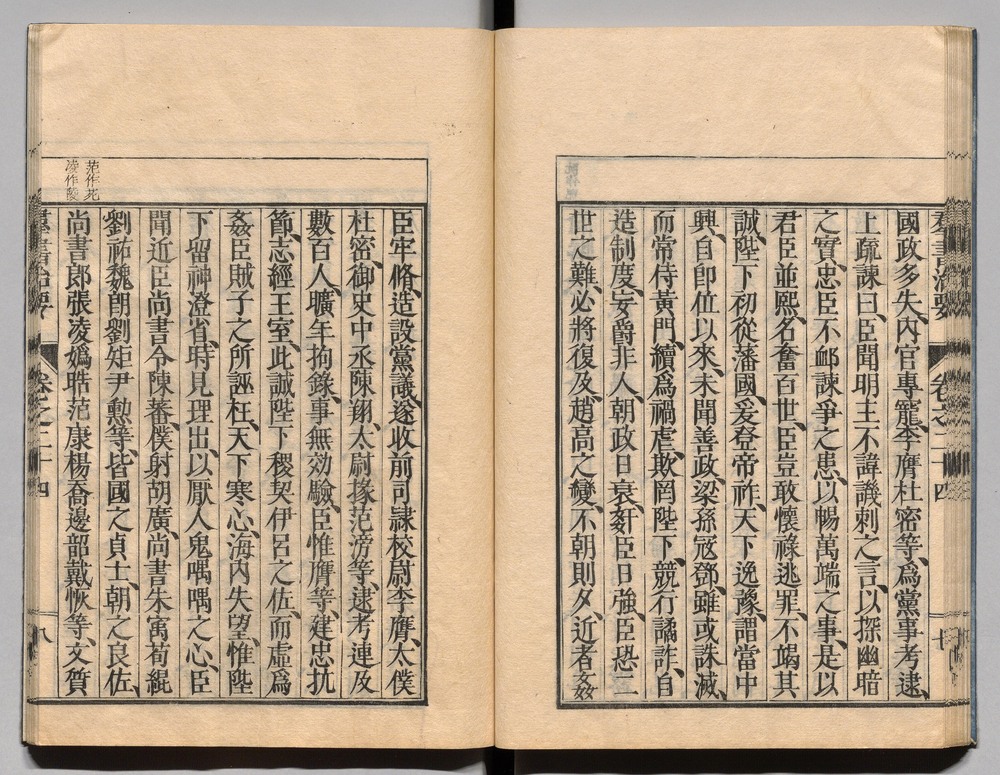 羣書治要 卷之二十四 七
國政多失、內官專寵、李膺杜密等、爲黨事考逮、
上疏諫曰、臣聞明主不諱譏刺之言、以探幽暗
之實、忠臣不䘏諫爭之患、以暢萬端之事、是以
君臣並熙、名奮百世、臣豈敢懷祿逃罪、不竭其
誠、陛下初從藩國、爰登帝祚、天下逸豫、謂當中
興、自卽位以來、未聞善政、梁孫寇鄧、雖或誅滅、
而常侍黃門、續爲禍虐、欺罔陛下、競行譎詐、自
造制度、妄爵非人、朝政日衰、姦臣日強、臣恐二
世之難、必將復及、趙高之變、不朝則夕、近者姦
臣牢脩、造設黨議、遂收前司隸校尉李膺、太僕
杜密、御史中丞陳翔、太尉掾范滂等、逮考連及
數百人、曠年拘錄、事無効驗、臣惟膺等、建忠抗
節、志經王室、此誠陛下稷契伊呂之佐、而虛爲
姦臣賊子之所誣枉、天下寒心、海內失望、惟陛
下留神澄省、時見理出、以厭人鬼喁喁之心、臣
聞近臣尚書令陳蕃、僕射胡廣、尚書朱㝢荀緄
劉祐魏朗劉矩尹勲等、皆國之貞士、朝之良佐、
尚書郞張凌嬀晧范康楊喬邊韶戴恢等、文質
范作苑
凌作陵
羣書治要 卷之二十四 八